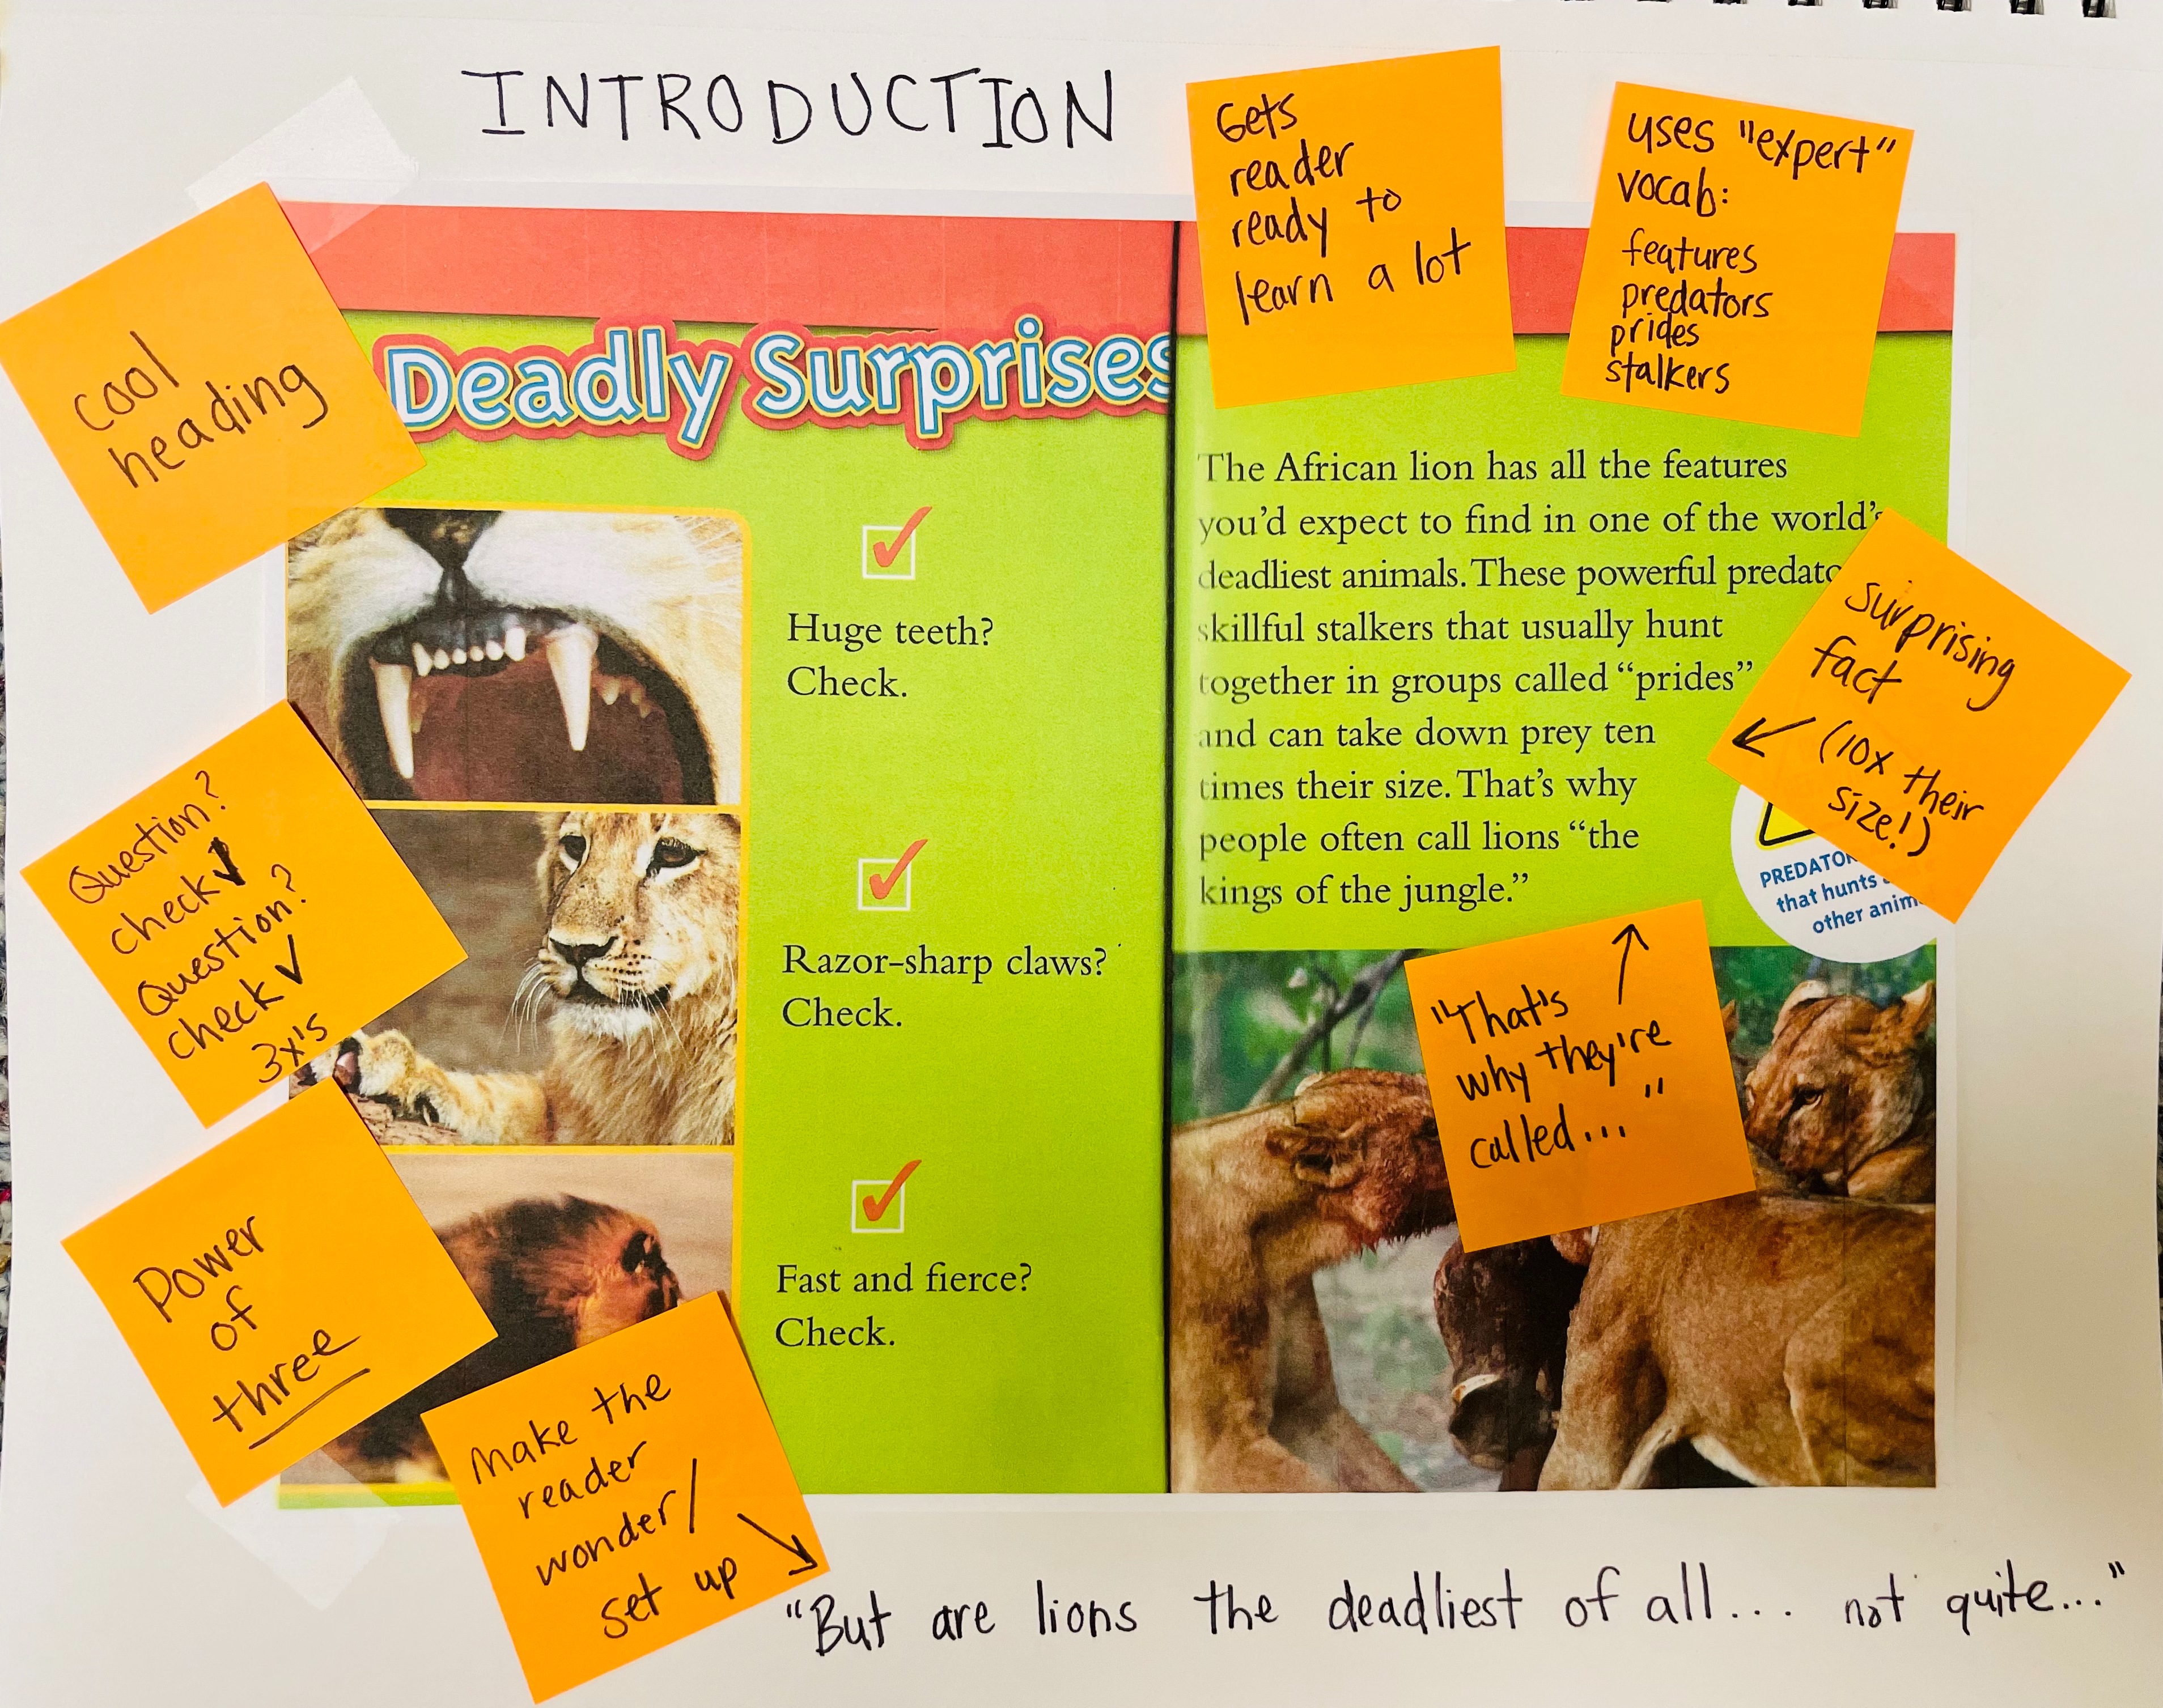 INTRODUCTION
Gets
reader
ready to
learn a lot
uses "expert"
vocab:
features
predators
prides
stalkers
cool
heading
Deadly Surprises
Huge teeth?
Check.
Razor-sharp claws?
Check.
Fast and fierce?
Check.
The African lion has all the features
you'd expect to find in one of the world's
deadliest animals. These powerful
skillful stalkers that usually hunt
together in groups called "prides"
and can take down prey ten
times their size. That's why
people often call lions "the
kings of the jungle."
surprising
fact
(10x their
size!)
that hunts
other
Question?
check ✓
Question?
check ✓
3x's
Power
of
three
"That's
why they're
called..."
Make the
reader
wonder/
set up
"But are lions the deadliest of all... not quite..."